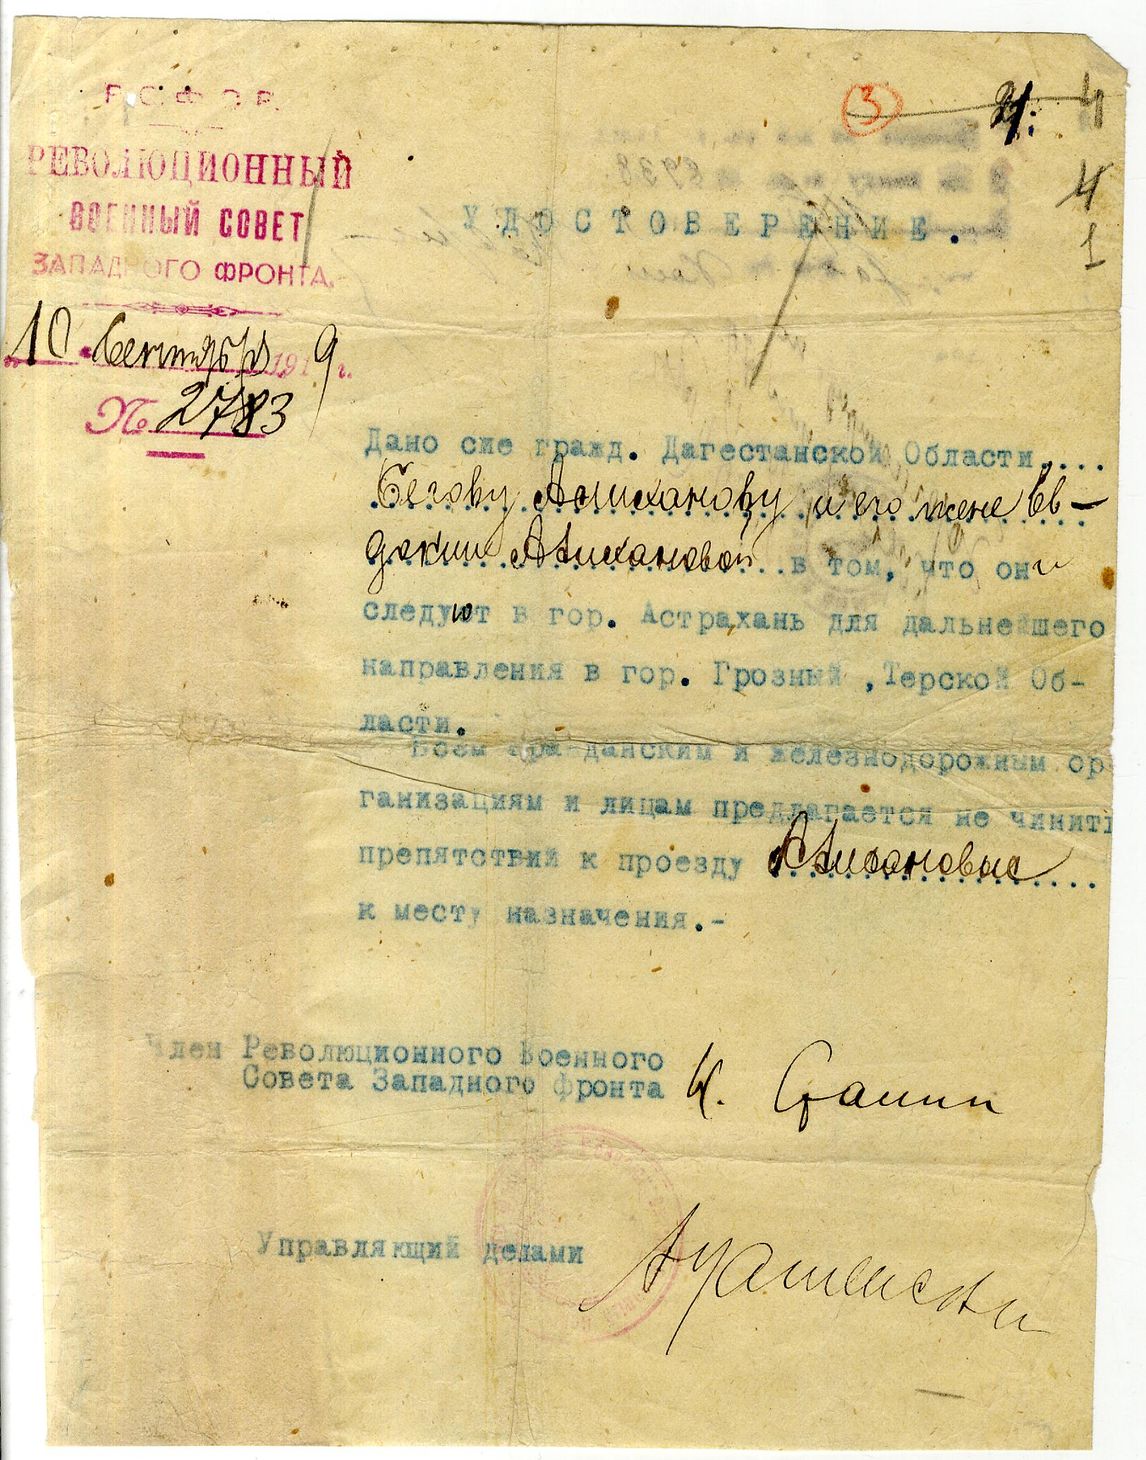 Р.С.Ф.С.Р.
РЕВОЛЮЦИОННЫЙ
ВОЕННЫЙ СОВЕТ
ЗАПАДНОГО ФРОНТА.
"10" Сентября 1919 г.
№ 2783
3
4
4
1
8938
УДОСТОВЕРЕНИЕ.
Дано сие гражд. Дагестанской Области....
Бегову Алиханову и его жене Ев-
докии Алихановой в том, что они
следуют в гор. Астрахань для дальнейшего
направления в гор. Грозный ,Терской Об-
ласти.
Всем гражданским и железнодорожным ор
ганизациям и лицам предлагается не чинить
препятствий к проезду Алихановые....
к месту назначения.-
Член Революционного Военного
Совета Западного фронта И. Сталин
Управляющий делами